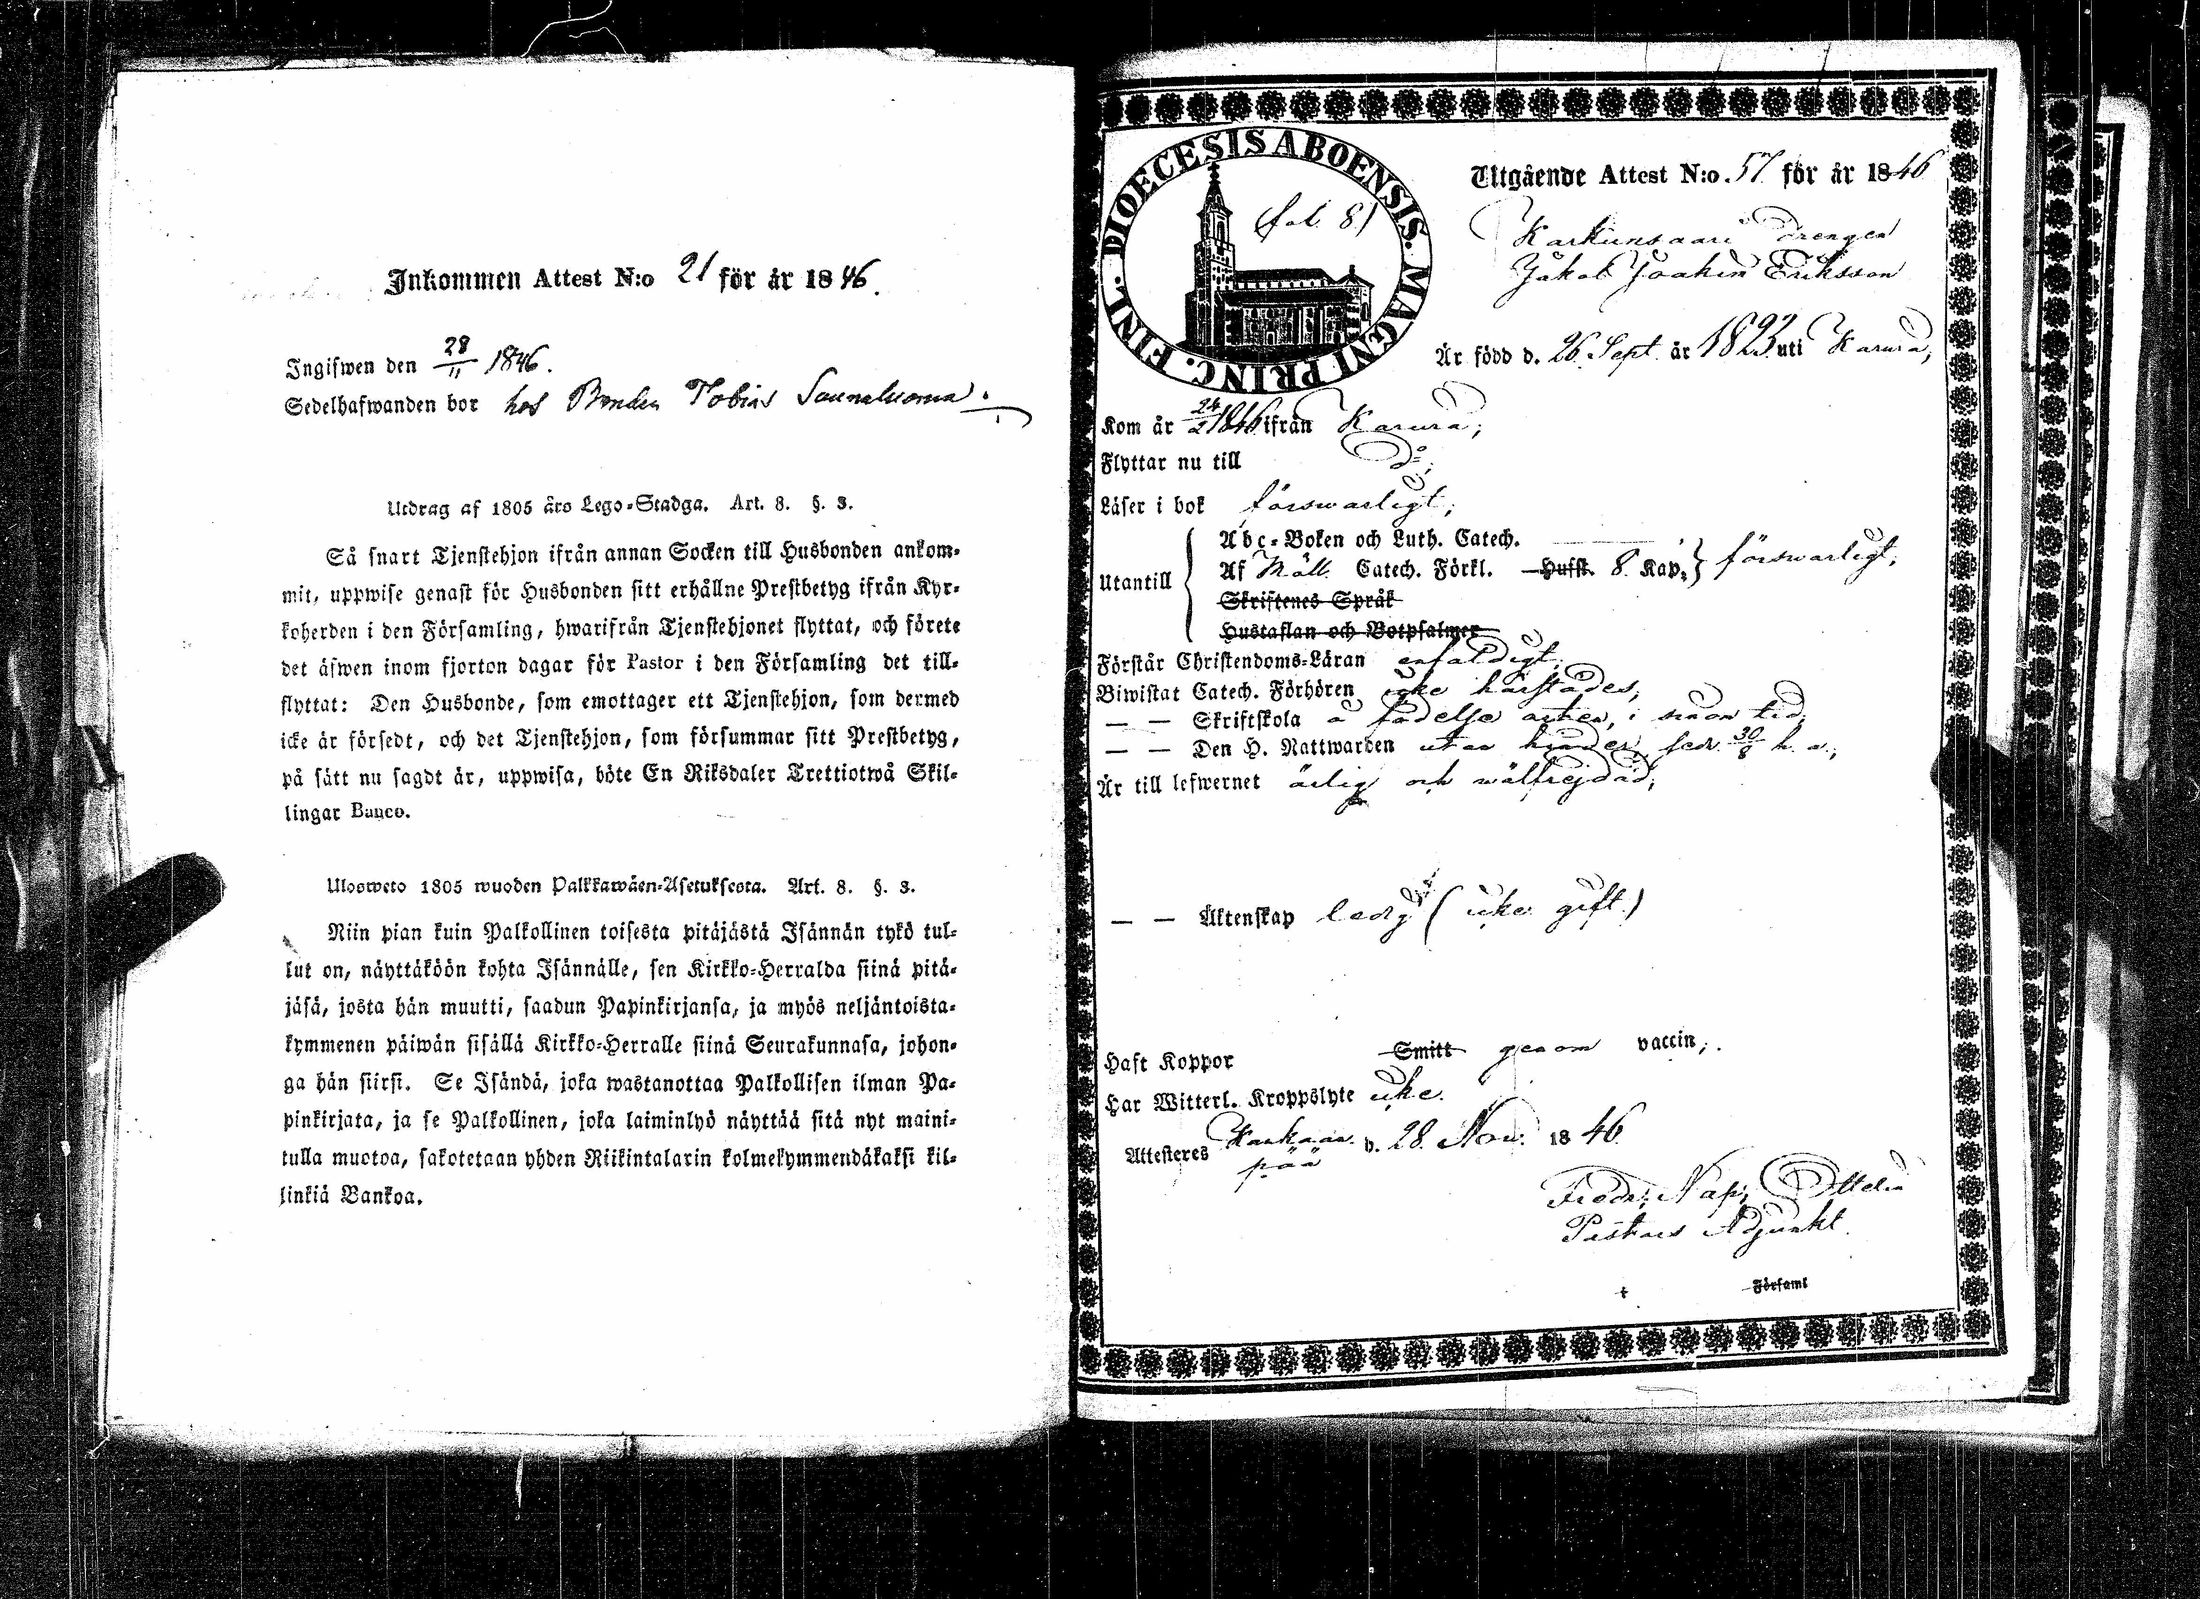 Inkommen Attest N:o 21 för år 1846.
Ingifwen den 28/11 1846.
Sedelhafwanden bor hos Bonden Tobias Saunaluoma.
Utdrag af 1805 års Lego-Stadga. Art. 8. §. 3.
Så snart Tjenstehjon ifrån annan Socken till Husbonden ankom-
mit, uppwise genast för Husbonden sitt erhållne Prestbetyg ifrån Kyr-
koherden i den Församling, hwarifrån Tjenstehjonet flyttat, och förete
det äfwen inom fjorton dagar för Pastor i den Församling det till-
flyttat: Den Husbonde, som emottager ett Tjenstehjon, som dermed
icke är försedt, och det Tjenstehjon, som försummar sitt Prestbetyg,
på sätt nu sagdt är, uppwisa, böte En Riksdaler Trettiotwå Skil-
lingar Banco.
Ulosweto 1805 wuoden Palkkawäen-Asetuksesta. Art. 8. §. 3.
Niin pian kuin Palkollinen toisesta pitäjästä Isännän tykö tul-
lut on, näyttäköön kohta Isännälle, sen Kirkko-Herralda siinä pitä-
jäsä, josta hän muutti, saadun Papinkirjansa, ja myös neljäntoista-
kymmenen päiwän sisällä Kirkko-Herralle siinä Seurakunnasa, johon-
ga hän siirsi. Se Isändä, joka wastanottaa Palkollisen ilman Pa-
pinkirjata, ja se Palkollinen, joka laiminlyö näyttää sitä nyt maini-
tulla muotoa, sakotetaan yhden Riikintalarin kolmekymmendäkaksi kil-
linkiä Bankoa.
DIOECESIS ABOENSIS. MAGNI PRINC. FINL.
(fol. 8)
Utgående Attest N:o 57 för år 1846
Karkunsaari drengen
Jakob Joakim Eriksson
Är född d. 26. Sept. år 1823 uti Karvia,
Kom år 24/2 1846 ifrån Karvia;
Flyttar nu till d:o;
Läser i bok förswarligt;
Abc-Boken och Luth. Catech.
Utantill Af Möll. Catech. Förkl. Husst. 8. Kap. förswarligt;
Skriftenes Språk
Hustaflan och Botpsalmer
Förstår Christendoms-Läran enfaldigt;
Biwistat Catech. Förhören icke härstädes;
— — Skriftskola å födelse orten, i sinom tid;
— — Den H. Nattwarden utan hinder, sedn. 30/8 h. a.;
Är till lefwernet ärlig och wälfrejdad;
— — Äktenskap ledig (icke gift.)
Haft Koppor Smitt genom vaccin;.
Har Witterl. Kroppslyte icke.
Attesteres Kankaan-
pää d. 28. Nov. 1846.
Fredr. Nap. Ottelin
Pastors Adjunkt.
Församl